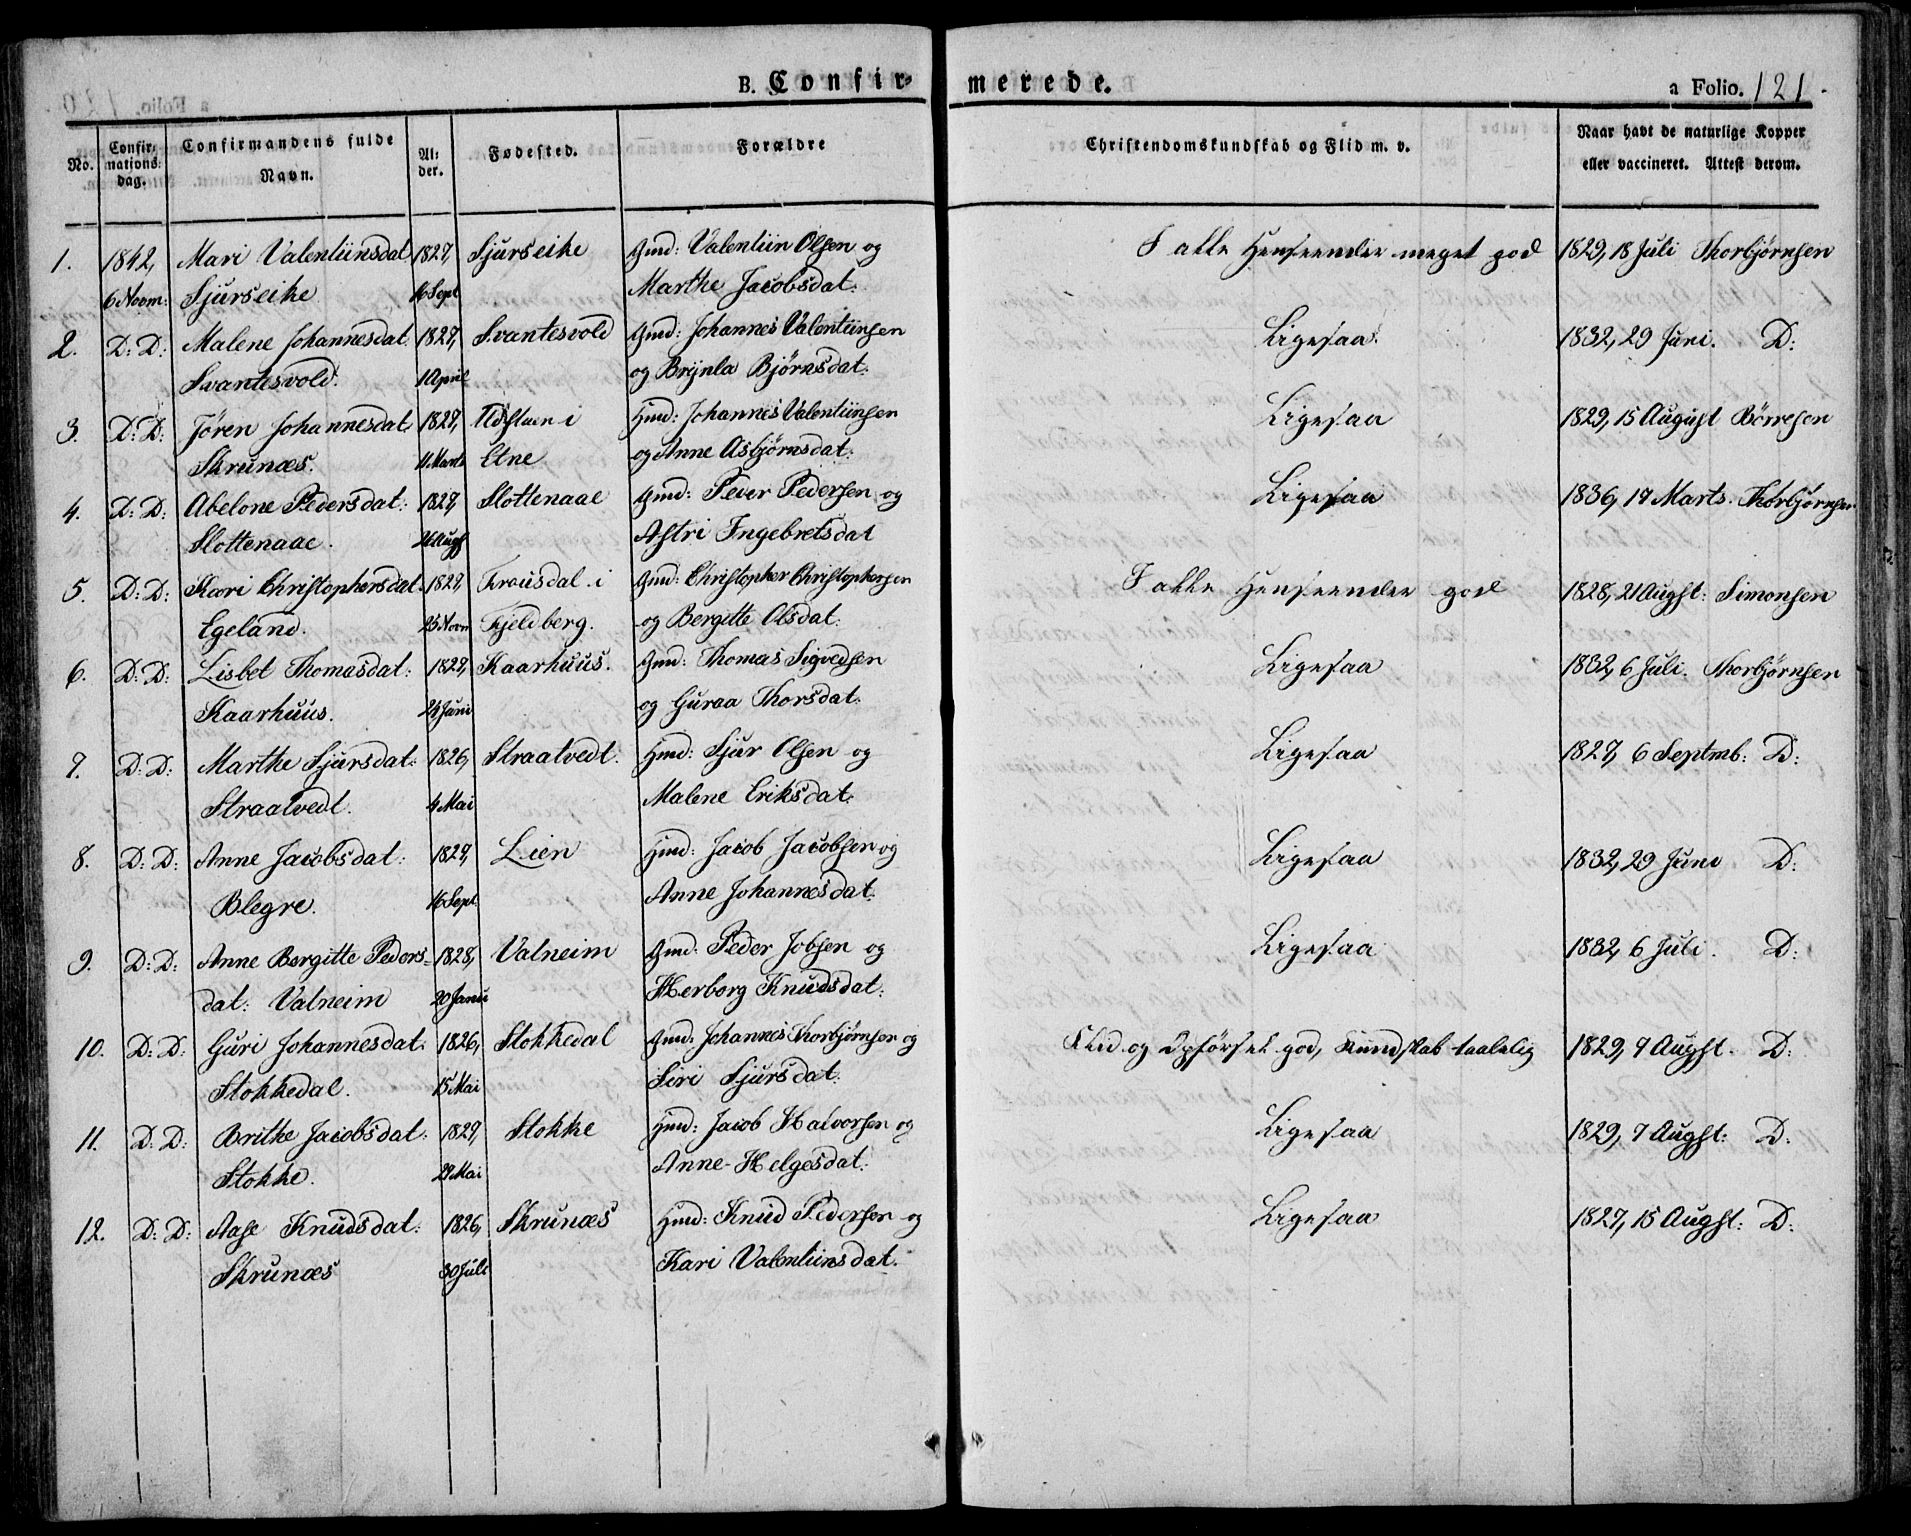 B. Confir-
merede.
a Folio. 121.
No.
Confir-
mations-
dag.
Confirmandens fulde
Navn.
Al-
der.
Fødested.
Forældre
Christendomskundskab og Flid m. v.
Naar havt de naturlige Kopper
eller vaccineret. Attest derom.
1. 1842, Mari Valentiinsdat 1827, Sjurseike Gmd: Valentiin Olsen og I alle Henseender meget god 1829, 18 Juli Thorbjørnsen
6 Novm: Sjurseike 16 Sept Marthe Jacobsdat:
2. D: D: Malene Johannesdat: 1827, Svantesvold Gmd: Johannes Valentiinsen Ligesaa. 1832, 29 Juni. D:
Svantesvold. 1 April og Brynla Bjørnsdat:
3. D: D: Jøren Johannesdat: 1827, i Hmd: Johannes Valentiinsen Ligesaa 1829, 15 August Børresen
Skrunæs. 11 Marts Etne og Anne Asbjørnsdat:
4. D: D: Abelone Pedersdat: 1827, Slottenaae Gmd: Peder Pedersen og Ligesaa 1836, 17 Marts. Thorbjørnsen
Slottenaae. Augst Astri Ingebretsdat
5. D: D: Kari Christophersdat: 1827, i Gmd: Christopher Christophersen I alle Henseender god 1828, 21 Augst: Simonsen
Egeland. 25 Novm Fjeldberg. og Bergitte Olsdat:
6. D: D: Lisbet Thomasdat: 1827, Kaarhuus. Gmd: Thomas Sigvedsen Ligesaa 1832, 6 Juli. Thorbjørnsen
Kaarhuus. 24 Juni og Guraa Thorsdat:
7. D: D: Marthe Sjursdat: 1826, Straatvedt. Hmd: Sjur Olsen og Ligesaa 1827, 6 Septmb: D:
Straatvedt. 4 Mai Malene Eriksdat:
8. D: D: Anne Jacobsdat: 1827, Lien Hmd: Jacob Jacobsen og Ligesaa 1832, 29 Juni D:
Blegre. 16 Sept. Anne Johannesdat:
9. D: D: Anne Bergitte Peders- 1828, Valneim Gmd: Peder Jobsen og Ligesaa 1832, 6 Juli. D:
dat: Valneim 20 Janu Herborg Knudsdat:
10. D: D: Guri Johannesdat: 1826, Stokkedal Gmd: Johannes Thorbjørnsen og Flid og Opførsel god, Kundskab taalelig 1829, 7 Augst. D:
Stokkedal. 15 Mai Siri Sjursdat:
11. D: D: Brithe Jacobsdat: 1827, Stokke Hmd: Jacob Halvorsen og Ligesaa 1829, 7 Augst: D:
Stokke. Mai Anne Helgesdat:
12. D: D: Aase Knudsdat: 1826, Skrunæs Hmd: Knud Pedersen og Ligesaa 1827, 15 Augst: D:
Skrunæs 30 Juli Kari Valentiinsdat.